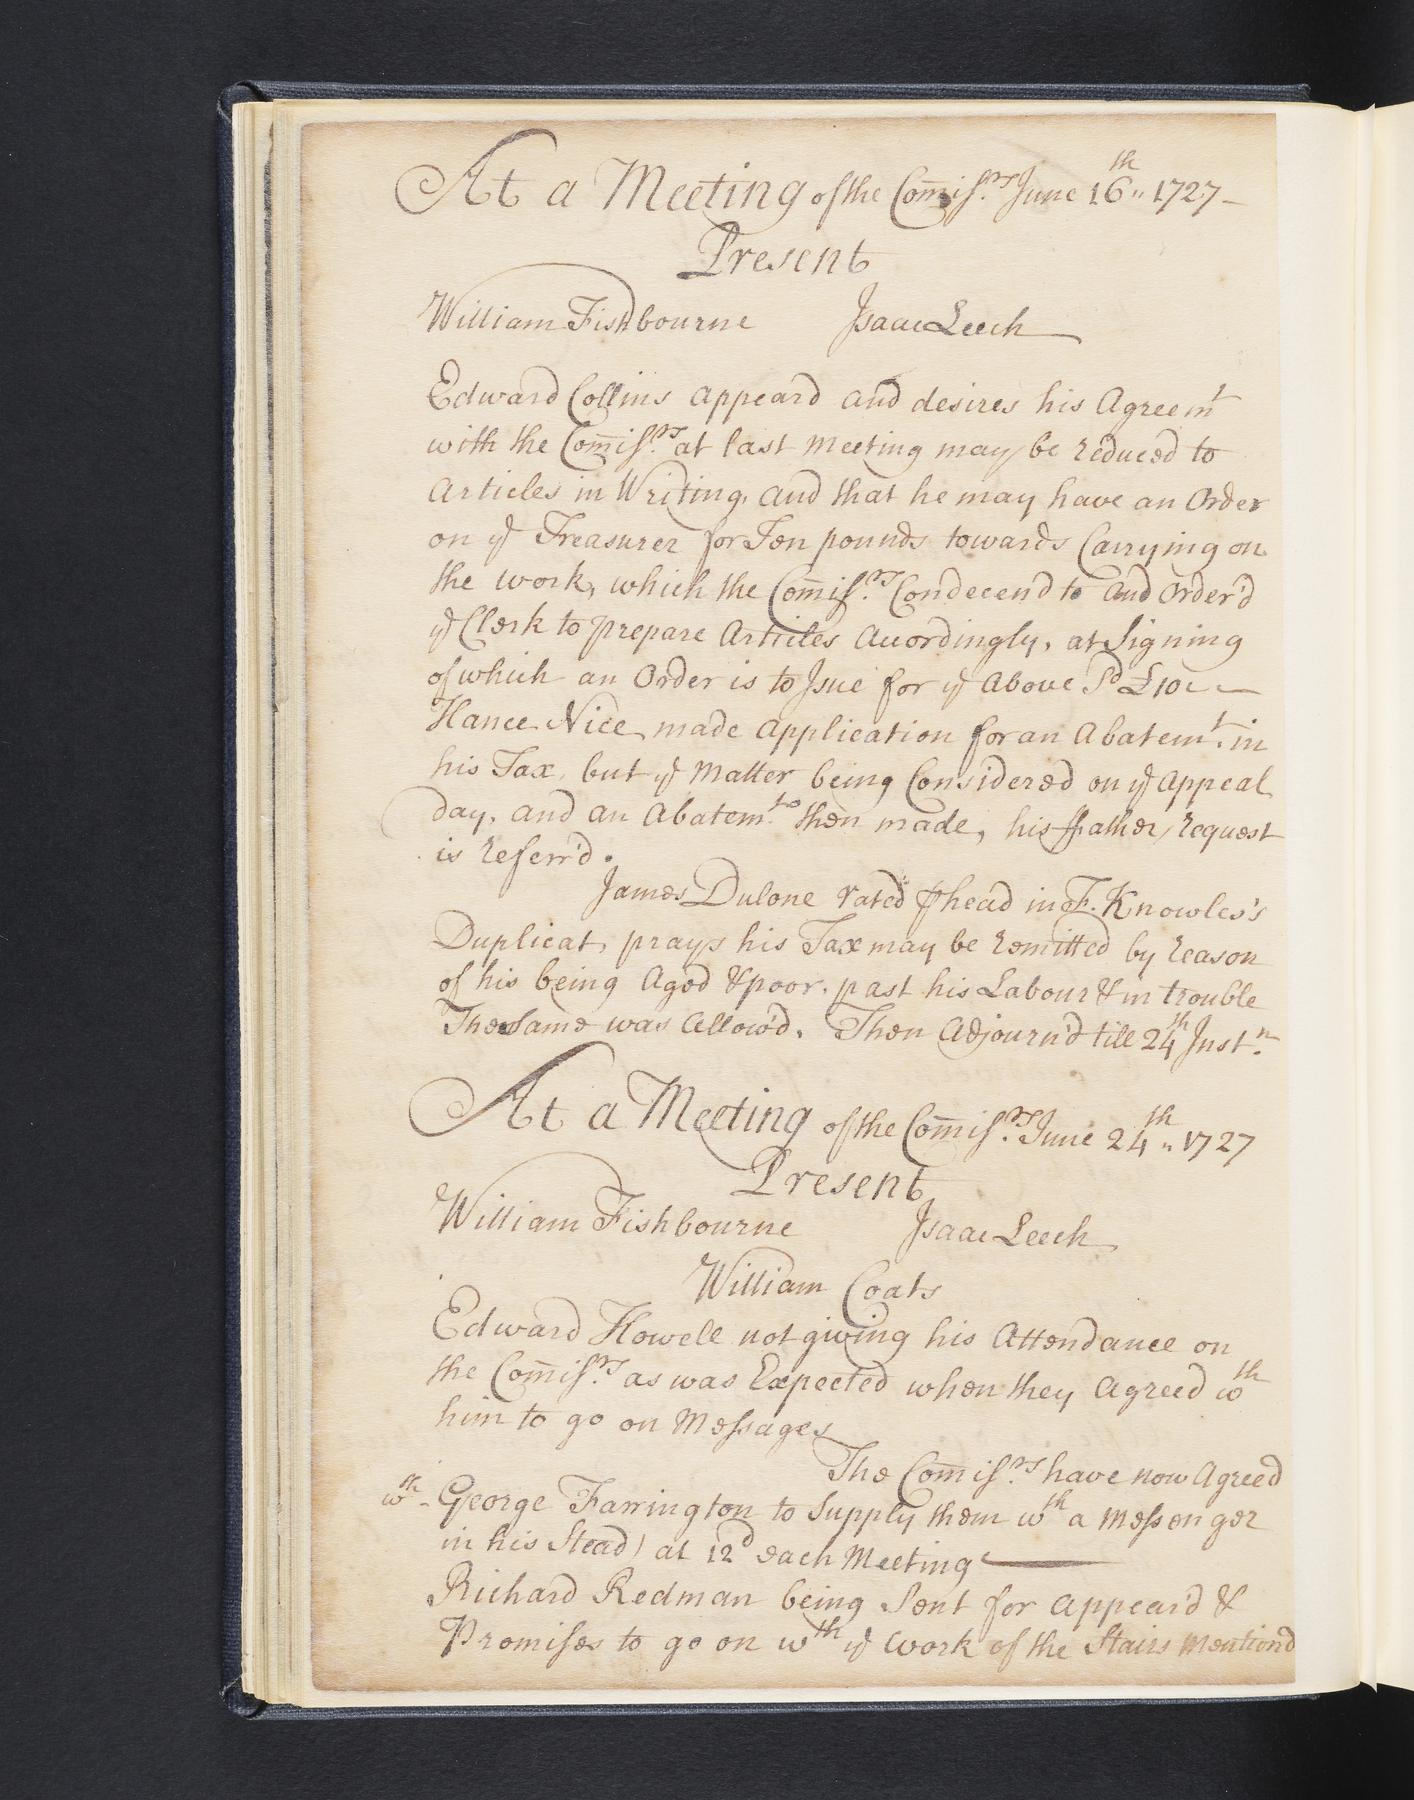 At a Meeting of the Com̄iss.rs June 16th 1727
Present
William Fishbourne Isaac Leech
Edward Collins appeard and desires his Agreemt
with the Com̄iss.rs at last Meeting may be reduced to
Articles in Writing, and that he may have an Order
on ye Treasurer for Ten pounds towards Carrying on
the work, which the Com̄iss.rs Condecend to and Order'd
ye Clerk to prepare Articles Accordingly, at Signing
of which an Order is to Isue for ye Above Sd £10
Hance Nice made Application for an Abatemt. in
his Tax, but ye Matter being Considered on ye Appeal
day, and an Abatem.t then made, his ffather request
is referr'd.
James Dulone rated ⅌ head in F. Knowles's
Duplicat, prays his Tax may be remitted by reason
of his being Aged & poor, past his Labour & in trouble
The Same was Allow'd. Then Adjourn'd till 24th Inst.n
At a Meeting of the Com̄iss.rs June 24th 1727
Present
William Fishbourne Isaac Leech
William Coats
Edward Howell not giving his Attendance on
the Com̄iss.rs as was Expected when they Agreed wth
him to go on Messages
The Com̄iss.rs have now Agreed
wth George Farrington to Supply them wth a Messenger
in his Stead) at 12d each Meeting
Richard Redman being Sent for Appear'd &
Promises to go on wth ye work of the Stairs Mentiond